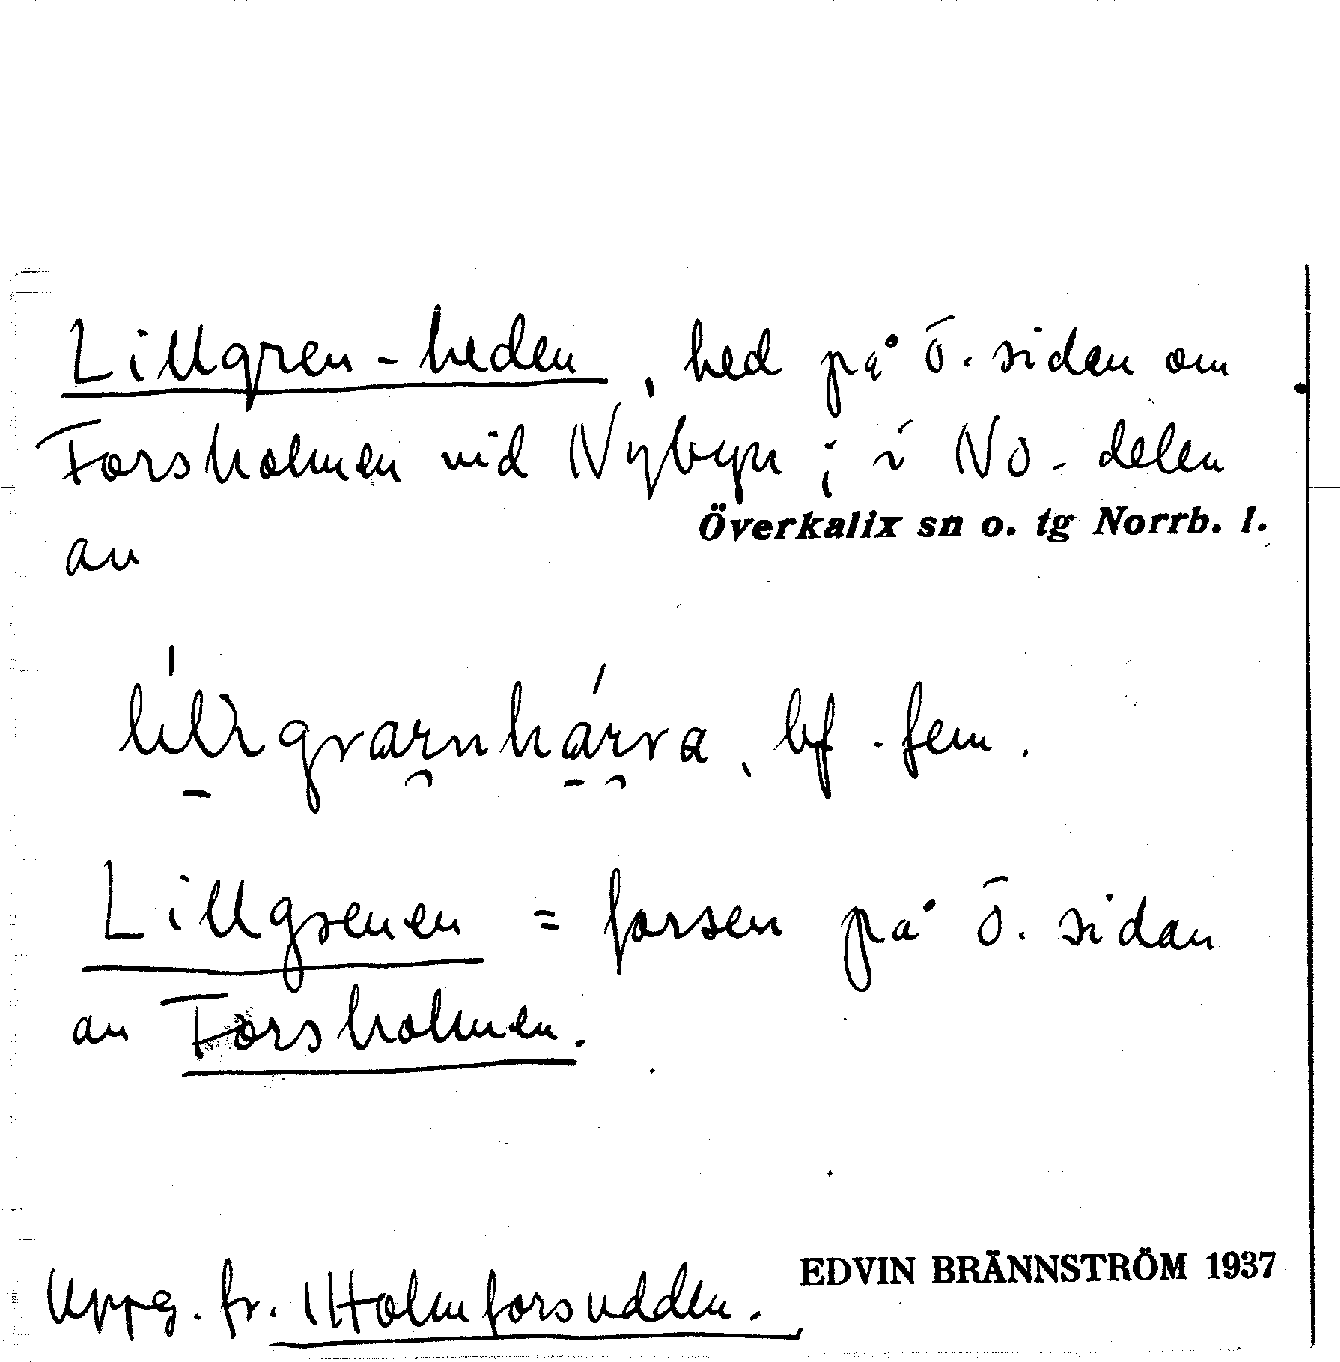 Lillgren-heden, hed på ö. sidan om
Forsholmen vid Nybyn; i NO-delen
Överkalix sn o. tg Norrb. l.
av
bf. fem.
Lillgrenen = forsen på ö. sidan
av Forsholmen.
EDVIN BRÄNNSTRÖM 1937
Uppg. fr. Holmforsudden.